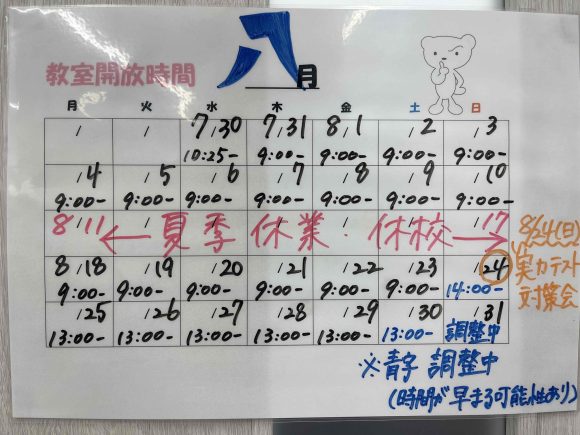 八月
教室開放時間
月 火 水 木 金 土 日
/ / 7/30 7/31 8/1 /2 /3
10:25- 9:00- 9:00- 9:00- 9:00-
/4 /5 /6 /7 /8 /9 /10
9:00- 9:00- 9:00- 9:00- 9:00- 9:00- 9:00-
8/11 ← 夏季休業・休校 → /17
8/18 /19 /20 /21 /22 /23 /24
9:00- 9:00- 9:00- 9:00- 9:00- 9:00- 14:00-
8/24(日)
実力テスト
対策会
/25 /26 /27 /28 /29 /30 /31
13:00- 13:00- 13:00- 13:00- 13:00- 13:00- 調整中
※青字 調整中
(時間が早まる可能性あり)